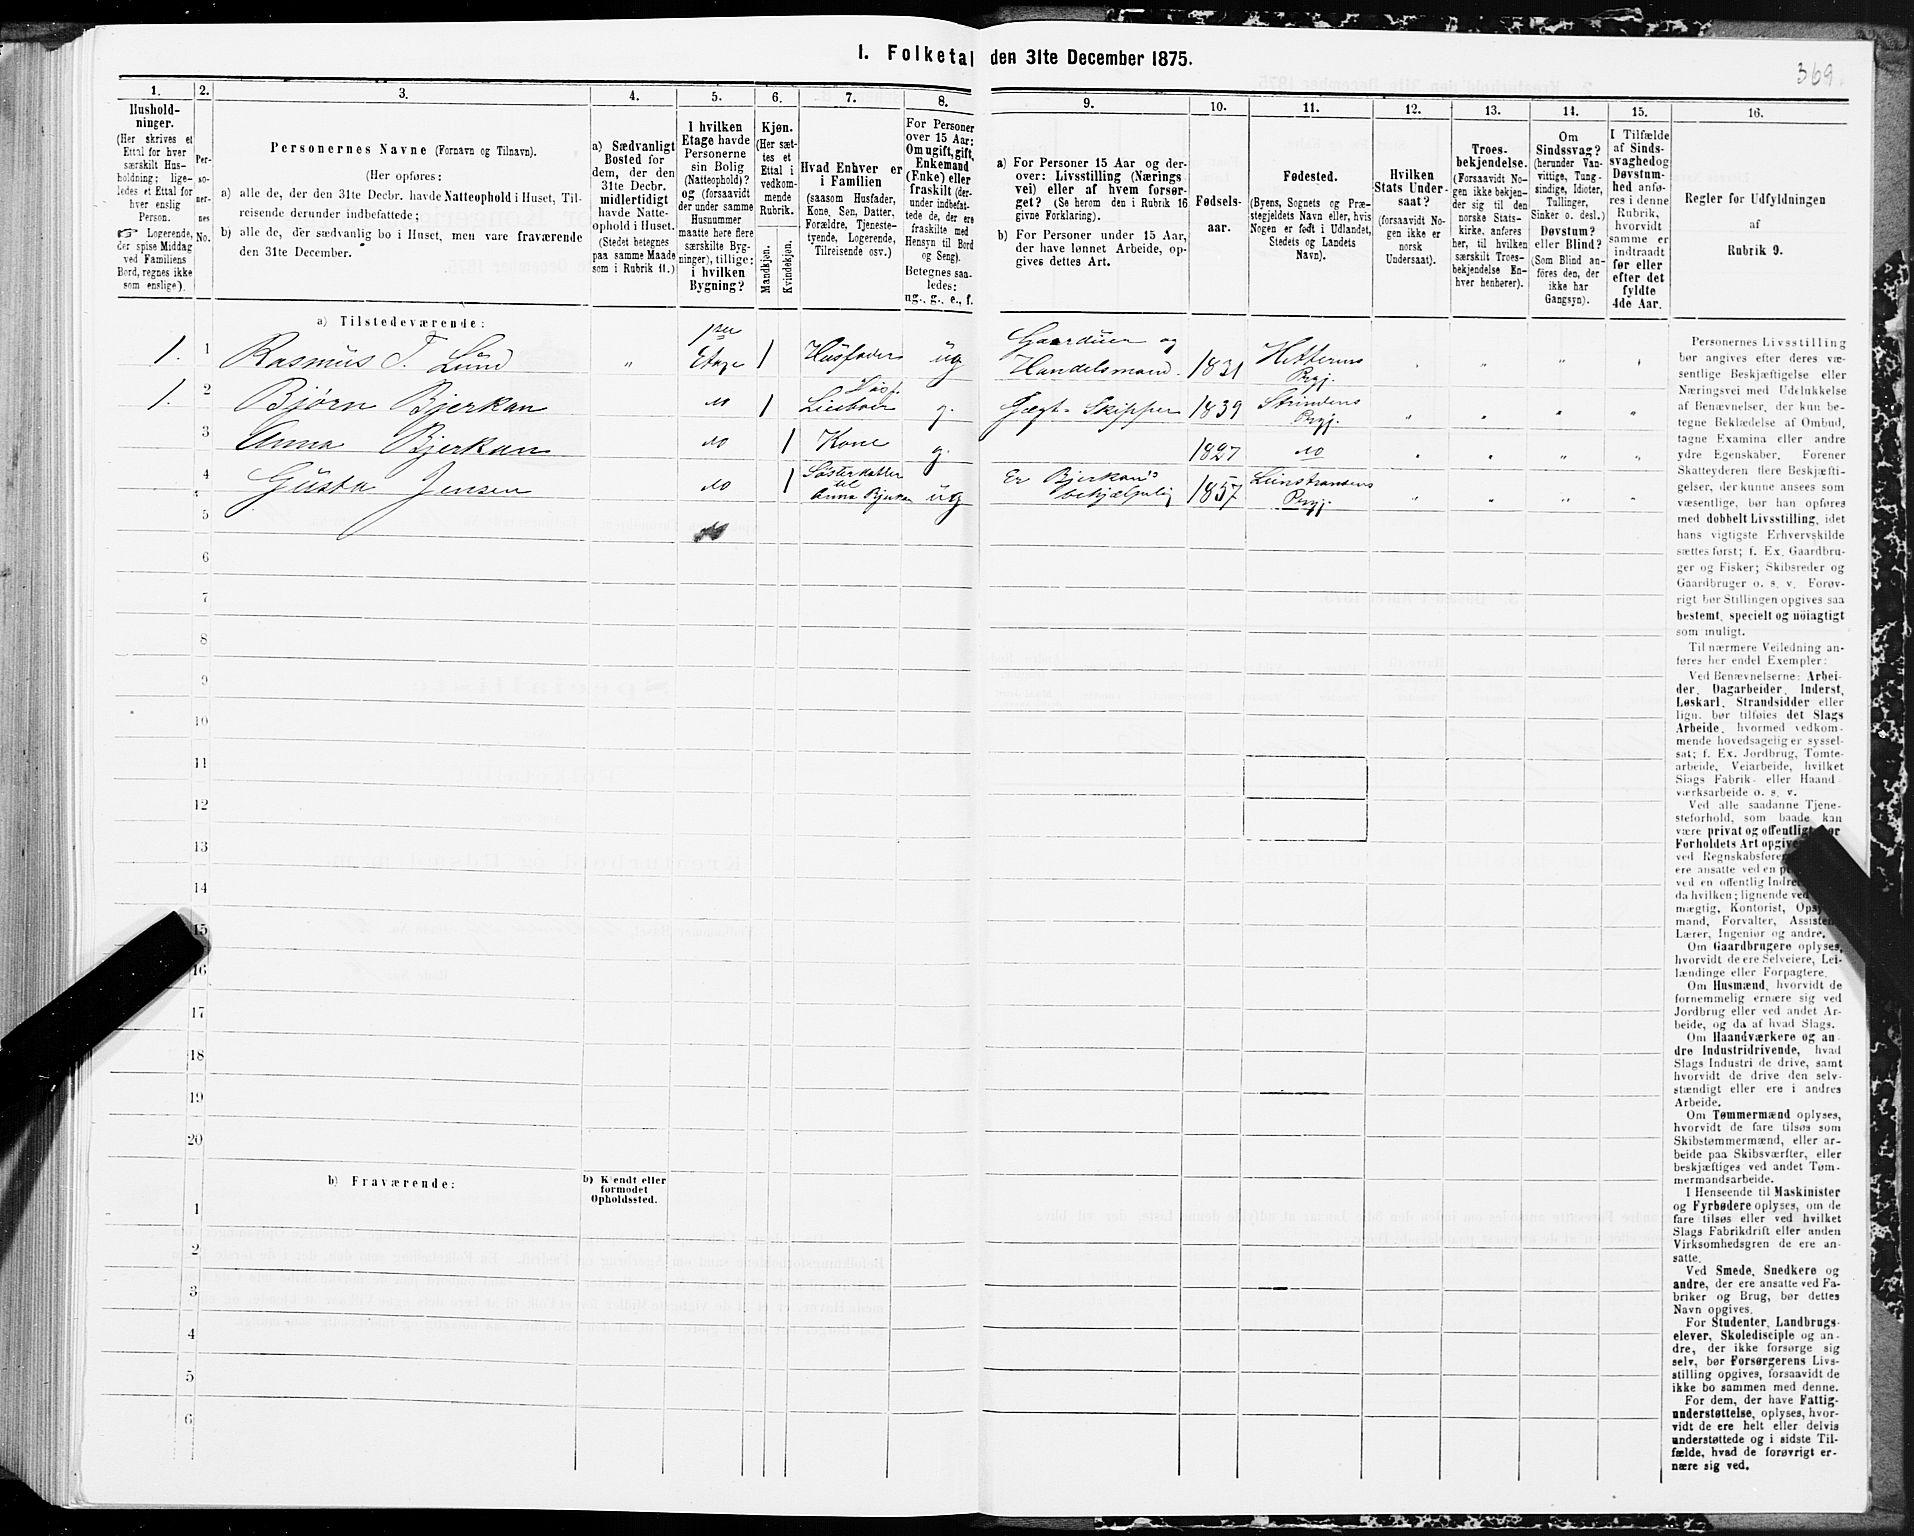 1. Folketal den 31te December 1875.
369.
1.
Hushold-
ninger.
(Her skrives et
Ettal for hver
særskilt Hus-
holdning; lige-
ledes et Ettal for
hver enslig
Person.
☞ Logerende,
der spise Middag
ved Familiens
Bord, regnes ikke
som enslige).
2.
Per-
so-
ner-
nes
No.
3.
Personernes Navne (Fornavn og Tilnavn).
(Her opføres:
a) alle de, der den 31te Decbr. havde Natteophold i Huset, Til-
reisende derunder indbefattede;
b) alle de, der sædvanlig bo i Huset, men vare fraværende
den 31te December.
4.
a) Sædvanligt
Bosted for
dem, der den
31te Decbr.
midlertidigt
havde Natte-
ophold i Huset.
(Stedet betegnes
paa samme Maade
som i Rubrik 11.)
5.
I hvilken
Etage havde
Personerne
sin Bolig
(Natteophold)?
og (forsaavidt
der under samme
Husnummer
maatte høre flere
særskilte Byg-
ninger), tillige:
i hvilken
Bygning?
6.
Kjøn.
(Her sæt-
tes et
Ettal i
vedkom-
mende
Rubrik.
Mandkjøn.
Kvindekjøn.
7.
Hvad Enhver er
i Familien
(saasom Husfader,
Kone, Søn, Datter,
Forældre, Tjeneste-
tyende, Logerende,
Tilreisende osv.)
8.
For Personer
over 15 Aar:
Om ugift, gift,
Enkemand
(Enke) eller
fraskilt (der-
under indbefat-
tede de, der ere
fraskilte med
Hensyn til Bord
og Seng).
Betegnes saa-
ledes:
ug., g., e., f.
9.
a) For Personer 15 Aar og der-
over: Livsstilling (Nærings
vei) eller af hvem forsør-
get? (Se herom den i Rubrik 16
givne Forklaring).
b) For Personer under 15 Aar,
der have lønnet Arbeide, op-
gives dettes Art.
10.
Fødsels-
aar.
11.
Fødested.
(Byens, Sognets og Præ-
stegjeldets Navn eller, hvis
Nogen er født i Udlandet,
Stedets og Landets
Navn).
12.
Hvilken
Stats Under-
saat?
(forsaavidt No-
gen ikke er
norsk
Undersaat).
13.
Troes-
bekjendelse.
(Forsaavidt No-
gen ikke bekjen-
der sig til den
norske Stats-
kirke, anføres
her, til hvilken
særskilt Troes-
bekjendelse En-
hver henhører).
14.
Om
Sindssvag?
(herunder Van-
vittige, Tung-
sindige, Idioter,
Tullinger,
Sinker o. desl.)
Døvstum?
eller Blind?
(Som Blind an-
føres den, der
ikke har
Gangsyn).
15.
I Tilfælde
af Sinds-
svaghed og
Døvstum-
hed anfø-
res i denne
Rubrik,
hvorvidt
samme er
indtraadt
før eller
efter det
fyldte
4de Aar.
16.
Regler før Udfyldningen
af
Rubrik 9.
a) Tilstedeværende:
1. 1 Rasmus T. Lund „ 1ste Etage 1 Husfader ug Gaardbruger og Handelsmand. 1831 Hitterens Prgj.
1. 2 Bjørn Bjerkan do 1 g. Jægt-Skipper 1839 Strindens Prgj.
3 Anna Bjerkan do 1 Kone g. 1827 do
4 Gusta Jensen do 1 Søsterdatter til Anna Bjerkan ug Er Bjerkan's behjælpelig 1857 Prgj.
5
6
7
8
9
10
11
12
13
14
15
16
17
18
19
20
b) Fraværende:
b) Kjendt eller
formodet
Opholdssted.
1
2
3
4
5
6
Personernes Livsstilling
bør angives efter deres væ-
sentlige Beskjæftigelse eller
Næringsvei med Udelukkelse
af Benævnelser, der kun be-
tegne Beklædelse af Ombud,
tagne Examina eller andre
ydre Egenskaber. Forener
Skatteyderen flere Beskjæfti-
gelser, der kunne ansees som
væsentlige, bør han opføres
med dobbelt Livsstilling, idet
hans vigtigste Erhvervskilde
sættes først; f. Ex. Gaardbru-
ger og Fisker; Skibsreder og
Gaardbruger o. s. v. Forøv-
rigt bør Stillingen opgives saa
bestemt, specielt og nöiagtigt
som muligt.
Til nærmere Veiledning an-
føres her endel Exempler:
Ved Benævnelserne: Arbei-
der, Dagarbeider, Inderst,
Løskarl, Strandsidder eller
lign. bør tilføies det Slags
Arbeide, hvormed vedkom-
mende hovedsagelig er syssel-
sat; f. Ex. Jordbrug, Tomte-
arbeide, Veiarbeide, hvilket
Slags Fabrik- eller Haand-
værksarbeide o. s. v.
Ved alle saadanne Tjene-
steforhold, som baade kan
være privat og offentligt, bør
Forholdets Art opgives
ved Regnskabsfører
ere ansatte ved en
ved en offentlig Indre
da hvilken; lignende ved
mægtig, Kontorist, Opsy
mand, Forvalter, Assisten
Lærer, Ingeniør og andre.
Om Gaardbrugere oplyses,
hvorvidt de ere Selveiere, Lei-
lændinge eller Forpagtere.
Om Husmænd, hvorvidt de
fornemmelig ernære sig ved
Jordbrug eller ved andet Ar-
beide, og da af hvad Slags.
Om Haandværkere og an-
dre Industridrivende, hvad
Slags Industri de drive, samt
hvorvidt de drive den selv-
stændigt eller ere i andres
Arbeide.
Om Tømmermænd oplyses,
hvorvidt de fare tilsøs som
Skibstømmermænd, eller ar-
beide paa Skibsværfter, eller
beskjæftiges ved andet Tøm-
mermandsarbeide.
I Henseende til Maskinister
og Fyrbødere oplyses, om de
fare tilsøs eller ved hvilket
Slags Fabrikdrift eller anden
Virksomhedsgren de ere an-
satte.
Ved Smede, Snedkere og
andre, der ere ansatte ved Fa-
briker og Brug, bør dettes
Navn opgives.
For Studenter, Landbrugs-
elever, Skoledisciple og an-
dre, der ikke forsørge sig
selv, bør Forsørgerens Livs-
stilling opgives, forsaavidt de
ikke bo sammen med denne.
For dem, der have Fattig-
understøttelse, oplyses, hvor-
vidt de ere helt eller delvis
understøttede og i sidste Til-
fælde, hvad de forøvrigt er-
nære sig ved.